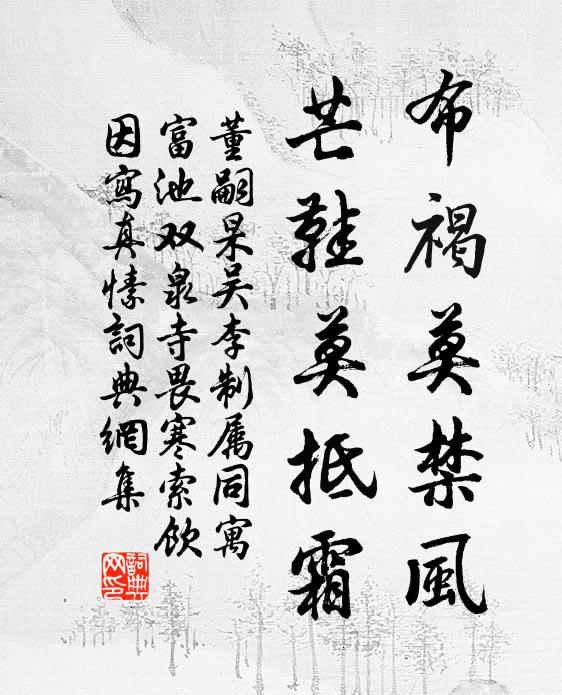 布褐莫禁風
芒鞋莫抵霜
董嗣杲吴李制属同寓
富池双泉寺畏寒索飲
因寫真愫詞典網集
詞典
网印